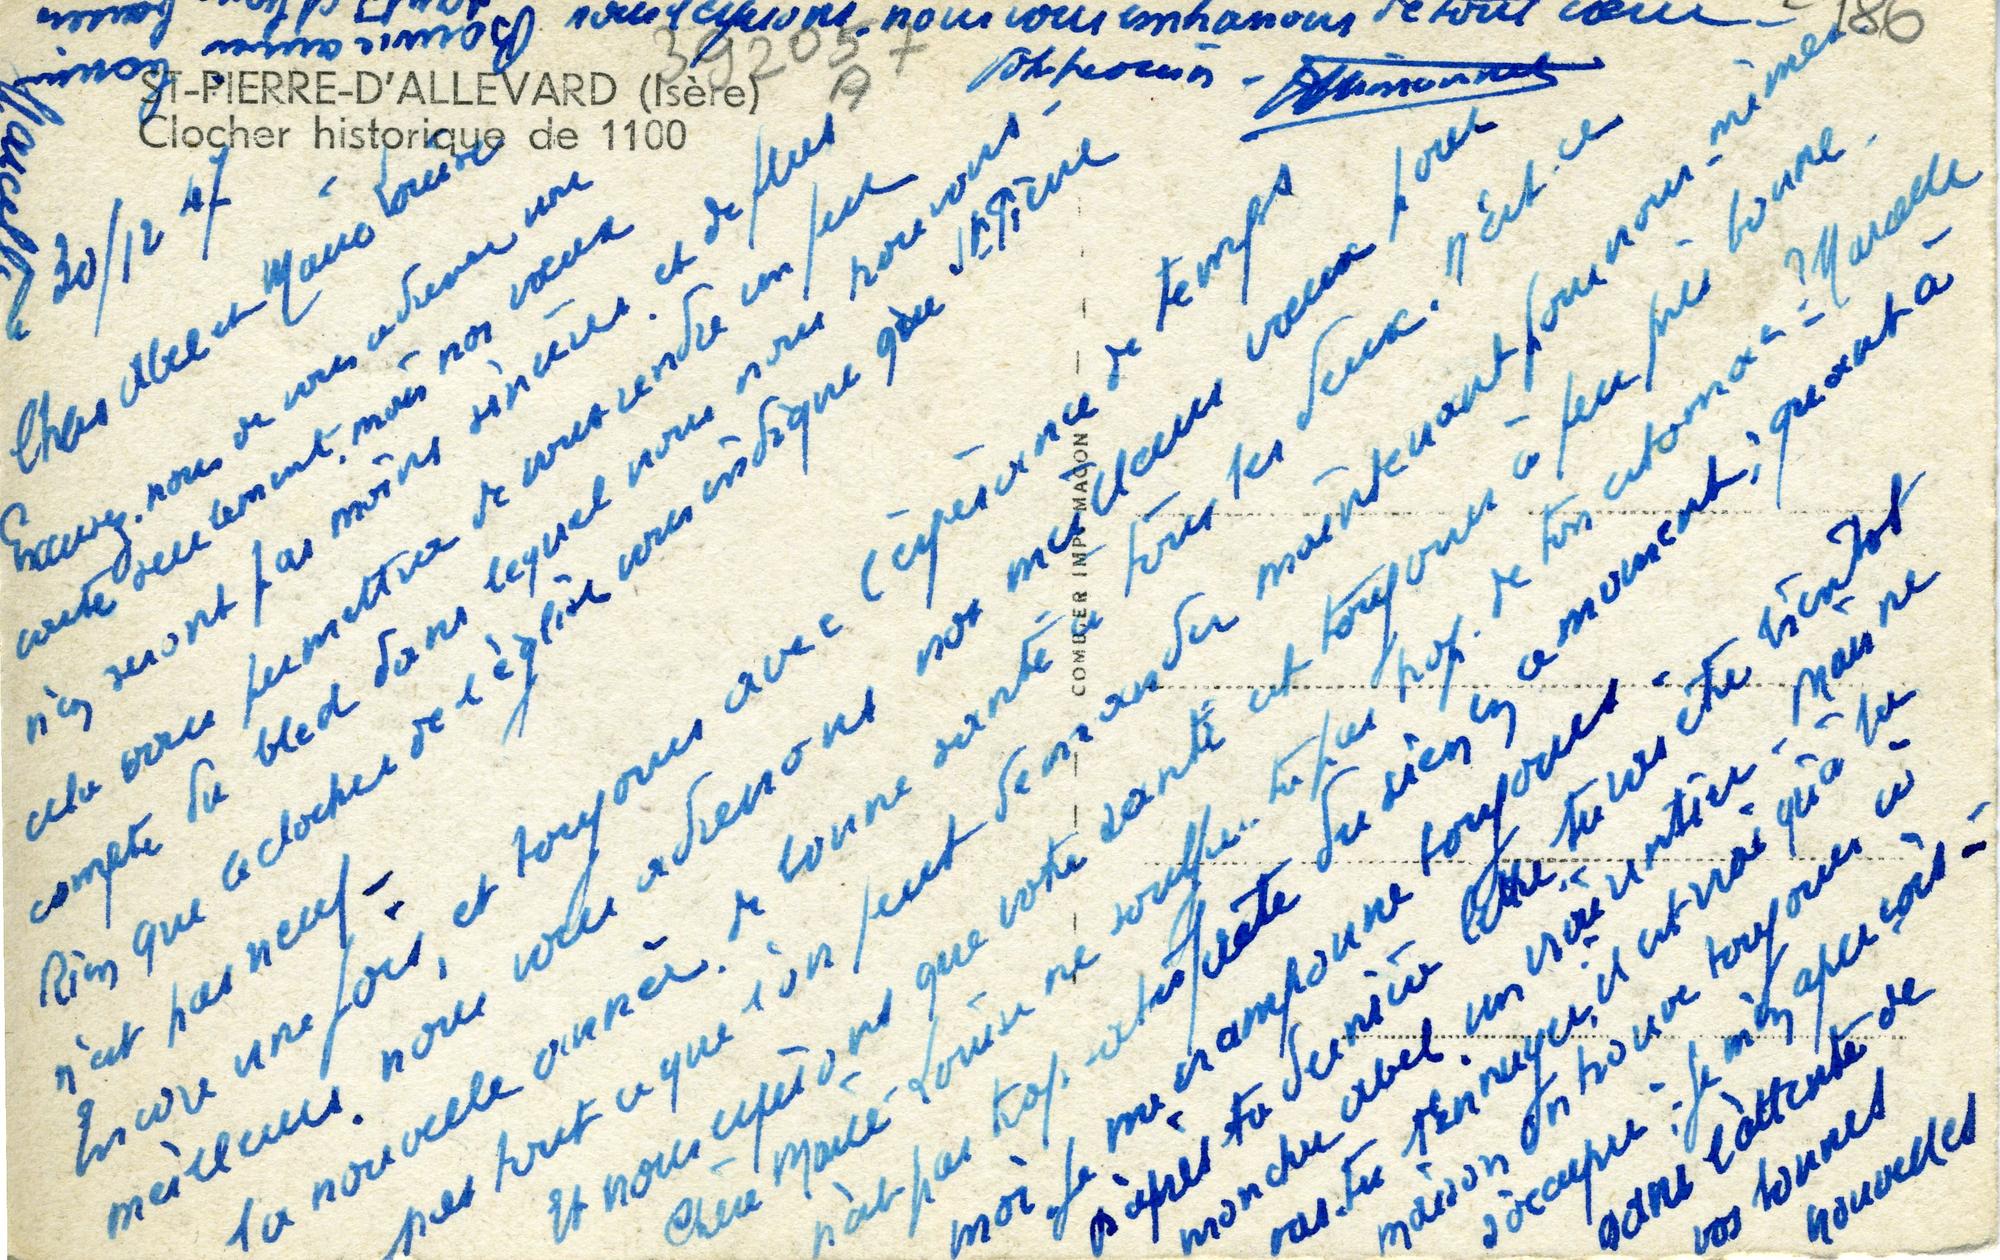 ST-PIERRE-D'ALLEVARD (Isère)
Clocher historique de 1100
392057
A
186
30/12 47
Chers Abel et Marie Louise
Excusez-nous de vous adresser une
carte seulement, mais nos vœux
n'en seront pas moins sincères. et de plus
cela vous permettra de vous rendre un peu
compte du bled dans lequel nous nous trouvons -
Rien que le clocher de l'église vous indique que St Pierre
n'est pas neuf -
Encore une fois, et toujours avec l'espérance de temps
meilleurs. nous vous adressons nos meilleurs vœux pour
la nouvelle année. de bonne santé à tous les deux. n'est-ce
pas tout ce que l'on peut demander maintenant pour nous-mêmes
Et nous espérons que votre santé est toujours à peu près bonne.
Chère Marie-Louise ne souffres-tu pas trop de ton estomac - ? Marcelle
n'est pas trop satisfaite du sien en ce moment; quant à
moi je me cramponne toujours -
D'après ta dernière lettre, tu vas être bientôt
mon cher Abel. un vrai rentier - Mais ne
vas-tu t'ennuyer, il est vrai qu'à la
maison on trouve toujours à
s'occuper - je m'en aperçois -
Dans l'attente de
vos bonnes
nouvelles
nous vous embrassons de tout cœur -
Bonne année
Marcelle
COMBIER IMP. MACON